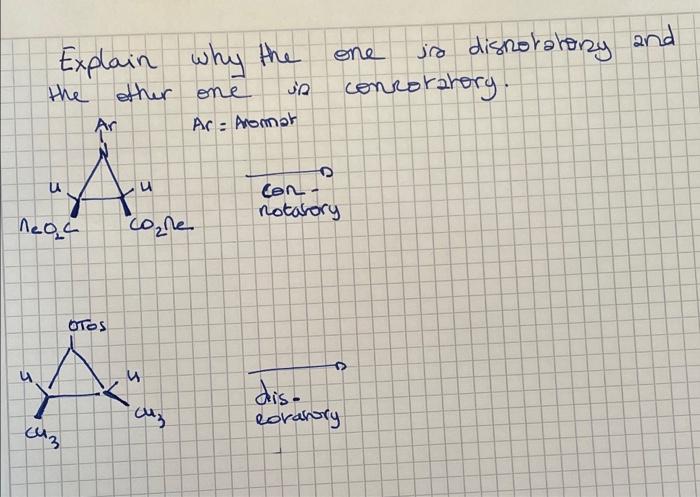 Explain why the one is disrotatory and
the other one is conrotatory.
Ar Ar = Aromat
N
H H
MeO₂C CO₂Me
con-
rotatory
OTos
H H
CH₃ CH₃
dis-
rotatory